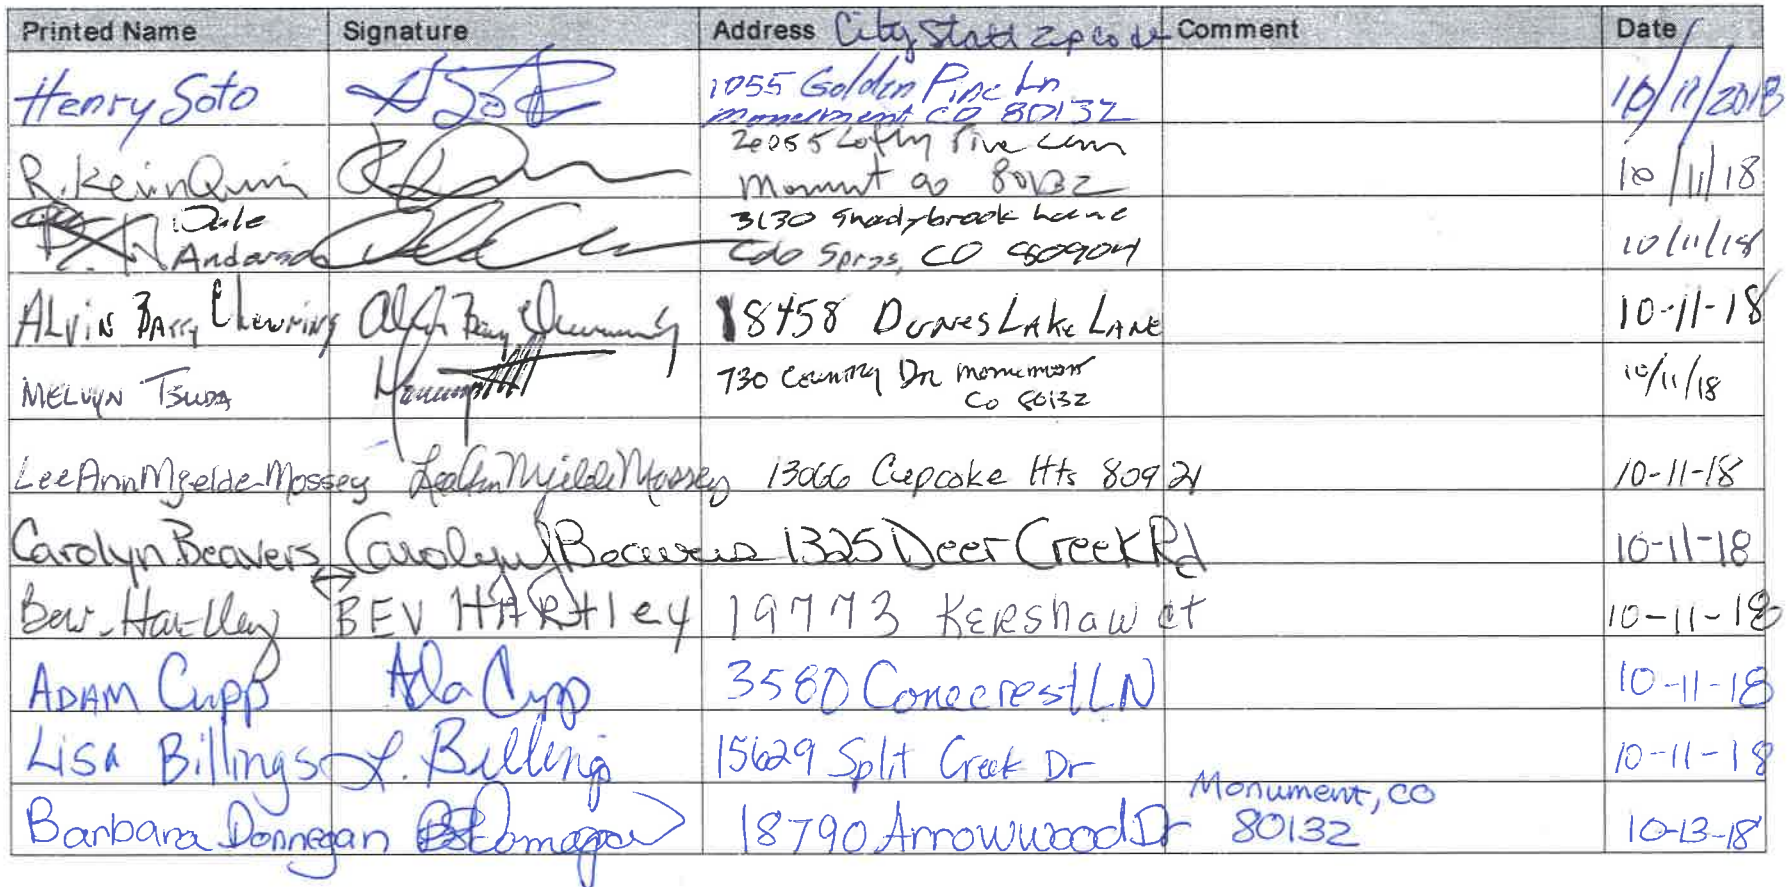 Printed Name Signature Address City State zip code Comment Date
Henry Soto 1055 Golden Pine Ln 10/11/2018
Monument CO 80132
R. Kevin Quinn Pine
80132 10/11/18
Dale 3130 Shadybrook Lane
Colo Sprgs, CO 80904 10/11/18
ALVIN BARRY 18458 DUNES LAKE LANE 10-11-18
MELVYN TSUDA 730 Country Dr Monument 10/11/18
CO 80132
LeeAnn Mjelde-Mossey LeeAnn Mjelde Mossey 13066 Cupcake Hts 80921 10-11-18
Carolyn Beavers Carolyn J Beavers 1325 Deer Creek Rd 10-11-18
Bev Hartley BEV HARtley 19773 Kershaw ct 10-11-18
ADAM Cupp Ada Cupp 3580 Conecrest LN 10-11-18
LISA Billings L. Billing 15629 Split Creek Dr 10-11-18
Barbara Donnegan 18790 Arrowwood Dr Monument, CO
80132 10-13-18